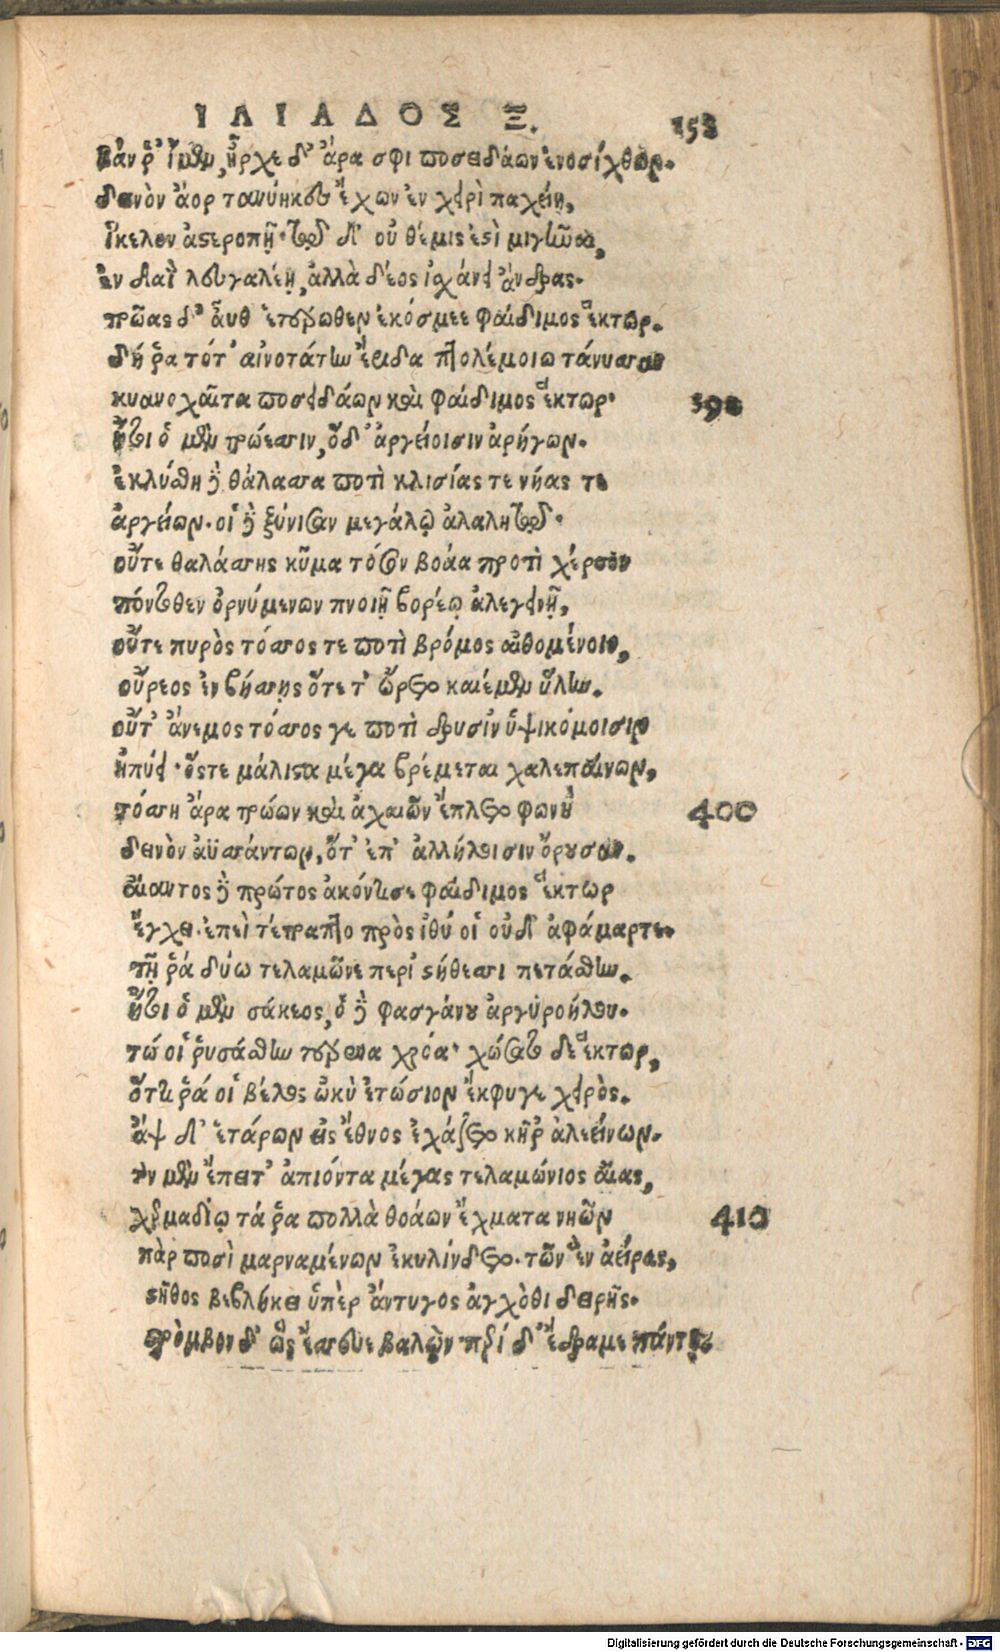 ΙΛΙΑΔΟΣ Ξ.
158
Βάν ῥ' ἴμεν, ἦρχε δ' ἄρα σφι ποσειδάων ἐνοσίχθων.
δεινὸν ἄορ τανύηκες ἔχων ἐν χειρὶ παχείῃ,
ἴκελον ἀστεροπῇ· τῷ δ' οὐ θέμις ἐστὶ μιγῆναι,
ἐν δαῒ λευγαλέῃ, ἀλλὰ δέος ἰσχάνει ἄνδρας.
τρῶας δ' αὖθ' ἑτέρωθεν ἐκόσμεε φαίδιμος ἕκτωρ.
δή ῥα τότ' αἰνοτάτην ἔριδα πτολέμοιο τάνυσσαν
κυανοχαῖτα ποσειδάων καὶ φαίδιμος ἕκτωρ·
390
ἤτοι ὁ μὲν τρώεσσιν, ὅδ' ἀργείοισιν ἀρήγων.
ἐκλύσθη δὲ θάλασσα ποτὶ κλισίας τε νῆας τε
ἀργείων. οἱ δὲ ξύνισαν μεγάλῳ ἀλαλητῷ.
οὔτε θαλάσσης κῦμα τόσον βοάα προτὶ χέρσον
πόντοθεν ὀρνύμενον πνοιῇ βορέῳ ἀλεγεινῇ,
οὔτε πυρὸς τόσσος τε ποτὶ βρόμος αἰθομένοιο,
οὔρεος ἐν βήσσῃς ὅτε τ' ὤρετο καιέμεν ὕλην.
οὔτ' ἄνεμος τόσσος γε ποτὶ δρυσὶν ὑψικόμοισιν
ἠπύει· ὅστε μάλιστα μέγα βρέμεται χαλεπαίνων,
τόσση ἄρα τρώων καὶ ἀχαιῶν ἔπλετο φωνὴ
400
δεινὸν ἀϋσάντων, ὅτ' ἐπ' ἀλλήλοισιν ὄρουσαν.
αἴαντος δὲ πρῶτος ἀκόντισε φαίδιμος ἕκτωρ
ἔγχει. ἐπεὶ τέτραπτο πρὸς ἰθύ οἱ οὐδ' ἀφάμαρτε.
τῇ ῥά δύω τελαμῶνε περὶ στήθεσσι τετάσθην.
ἤτοι ὁ μὲν σάκεος, ὁ δὲ φασγάνου ἀργυροήλου.
τώ οἱ ῥυσάσθην τέρενα χρόα· χώσατο δὲ ἕκτωρ,
ὅττι ῥά οἱ βέλος ὠκὺ ἐτώσιον ἔκφυγε χειρὸς.
ἂψ δ' ἑτάρων εἰς ἔθνος ἐχάζετο κῆρ' ἀλεείνων.
τὸν μὲν ἔπειτ' ἀπιόντα μέγας τελαμώνιος αἴας,
χερμαδίῳ τά ῥα πολλὰ θοάων ἔχματα νηῶν
410
πὰρ ποσὶ μαρναμένων ἐκυλίνδετο. τῶν ἓν ἀείρας,
στῆθος βεβλήκει ὑπὲρ ἄντυγος ἀγχόθι δειρῆς.
στρόμβον δ' ὣς ἔσσευε βαλὼν περὶ δ' ἔδραμε πάντῃ
Digitalisierung gefördert durch die Deutsche Forschungsgemeinschaft - DFG